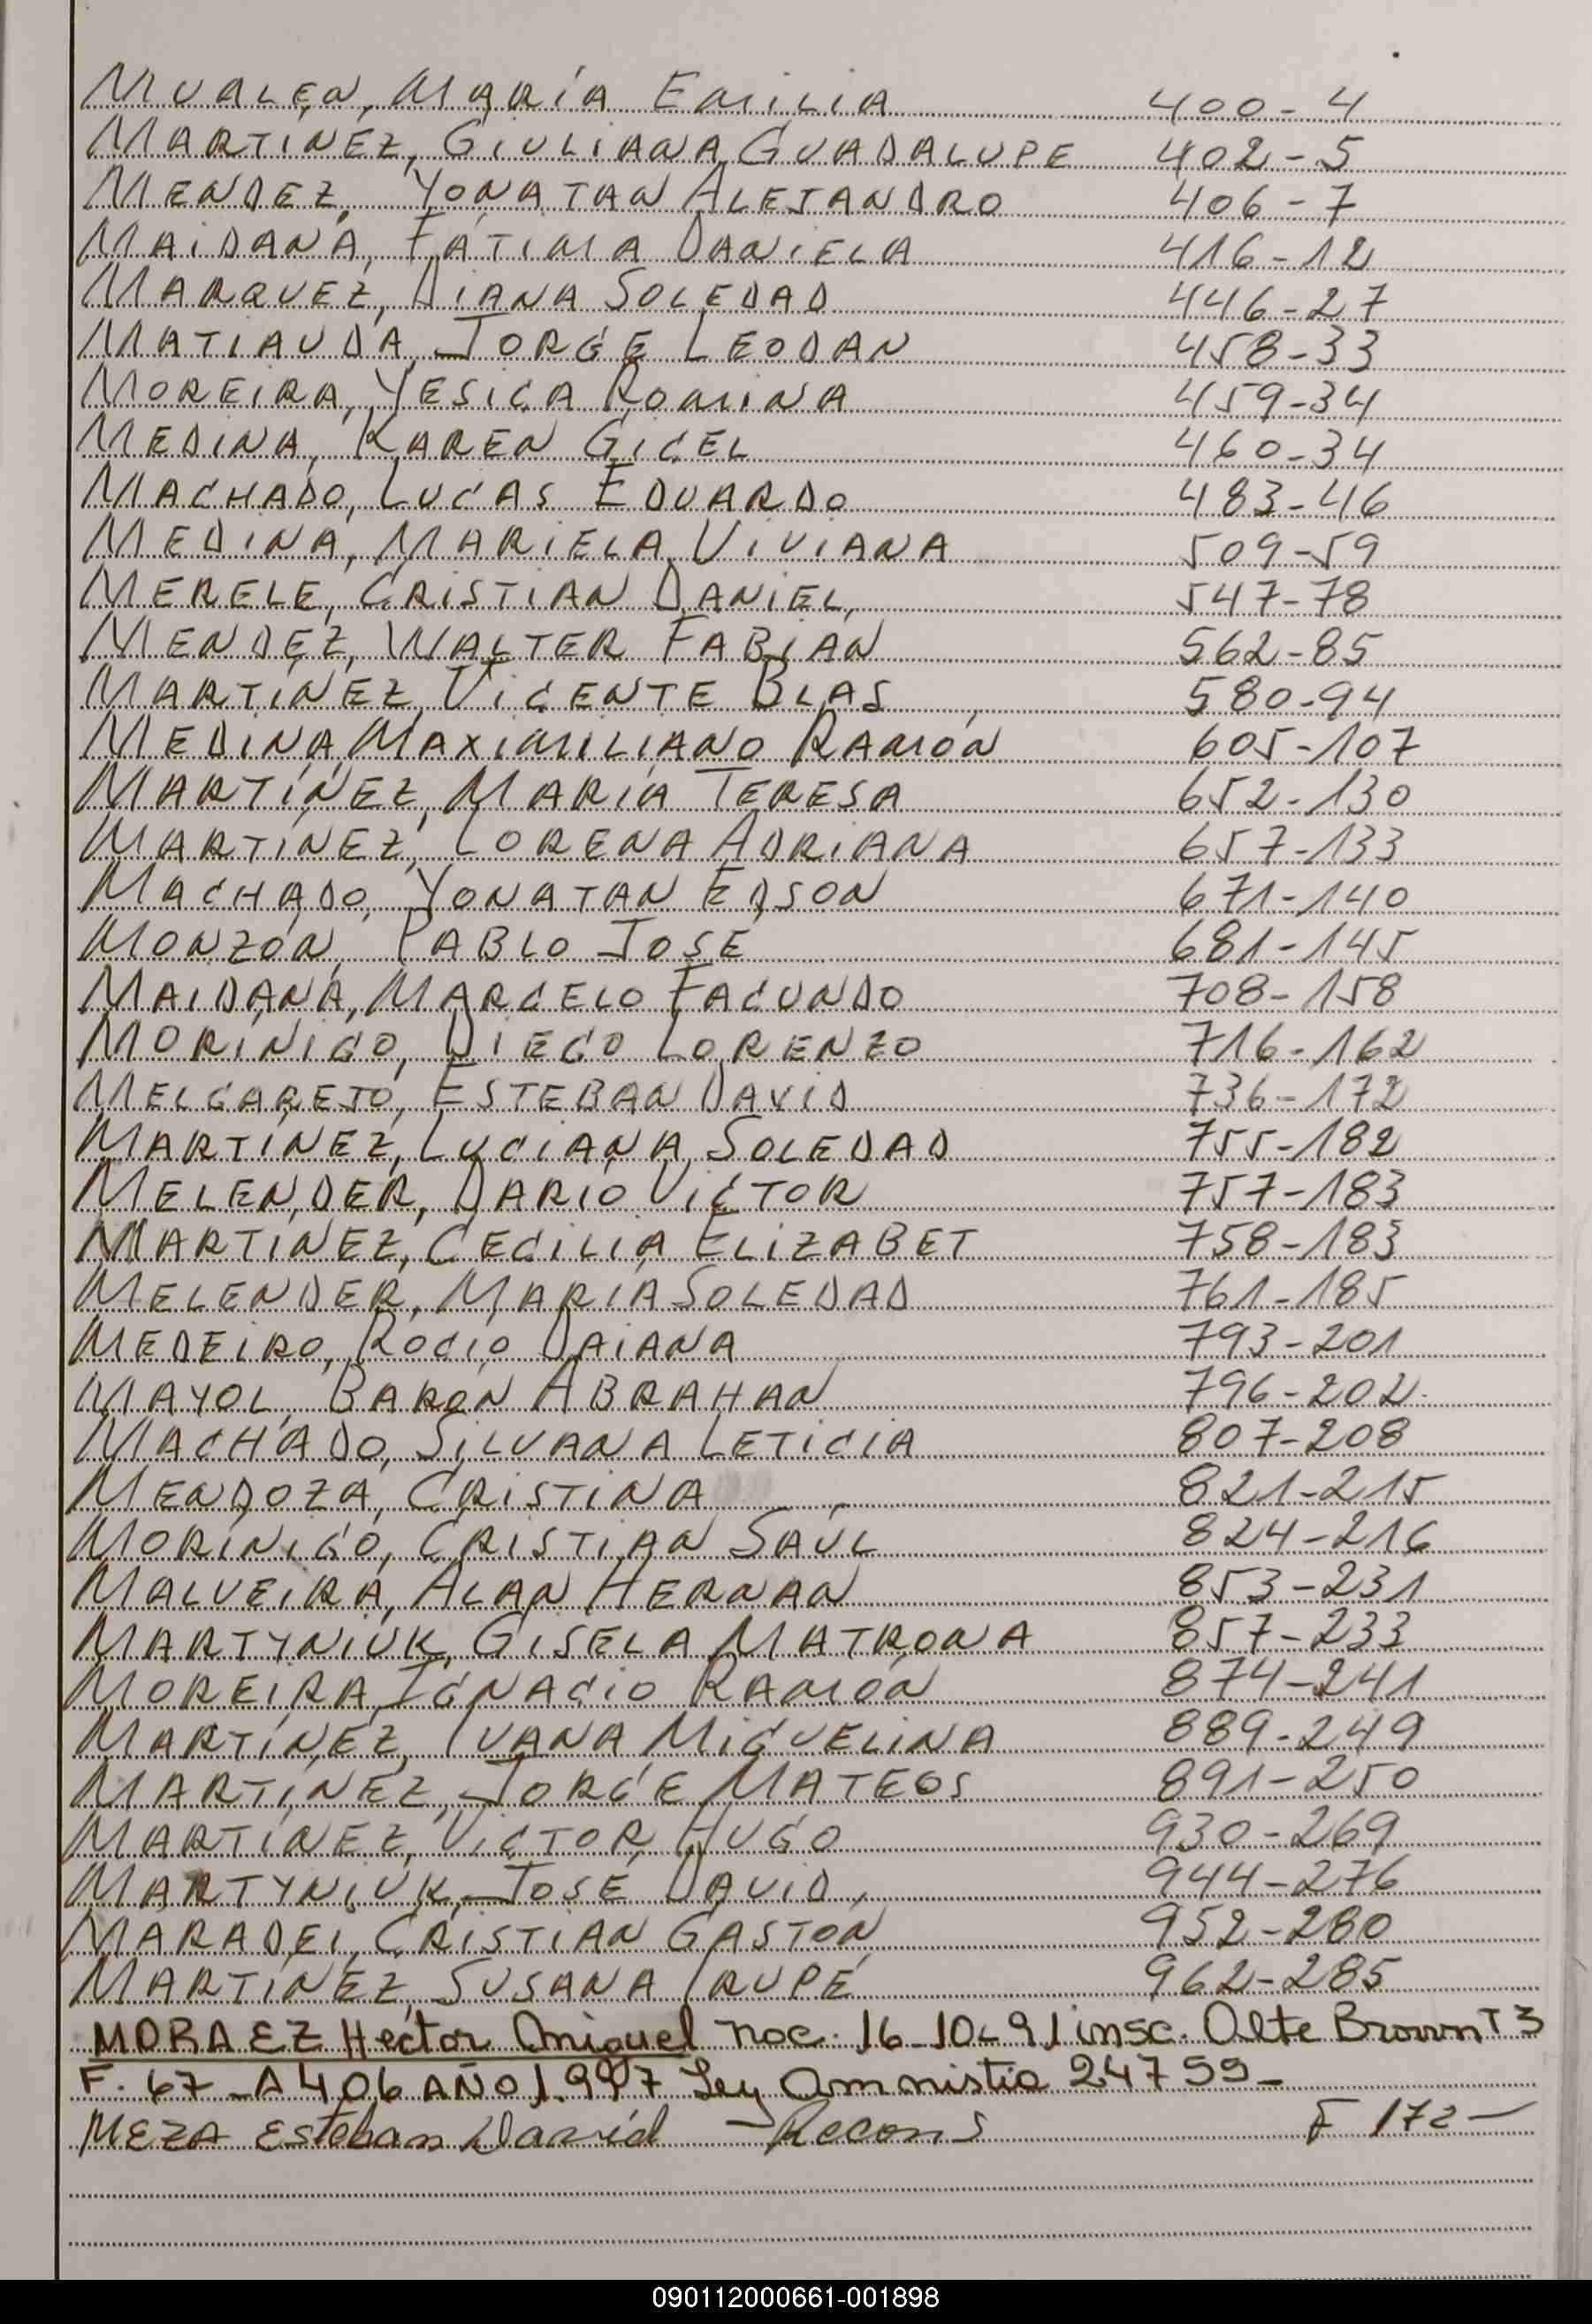 MUALEN, MARÍA EMILIA 400-4
MARTÍNEZ, GIULIANA GUADALUPE 402-5
MENDEZ, YONATAN ALEJANDRO 406-7
MAIDANA, FÁTIMA DANIELA 416-12
MARQUEZ, DIANA SOLEDAD 446-27
MATIAUDA, JORGE LEODAN 458-33
MOREIRA, YESICA ROMINA 459-34
MEDINA, KAREN GICEL 460-34
MACHADO, LUCAS EDUARDO 483-46
MEDINA, MARIELA VIVIANA 509-59
MERELE, CRISTIAN DANIEL 547-78
MENDEZ, WALTER FABIÁN 562-85
MARTÍNEZ, VICENTE BLAS 580-94
MEDINA, MAXIMILIANO RAMÓN 605-107
MARTÍNEZ, MARÍA TERESA 652-130
MARTÍNEZ, LORENA ADRIANA 657-133
MACHADO, YONATAN EDSON 671-140
MONZÓN, PABLO JOSÉ 681-145
MAIDANA, MARCELO FACUNDO 708-158
MORÍNIGO, DIEGO LORENZO 716-162
MELGAREJO, ESTEBAN DAVID 736-172
MARTÍNEZ, LUCIANA SOLEDAD 755-182
MELENDER, DARIO VICTOR 757-183
MARTINEZ, CECILIA ELIZABET 758-183
MELENDER, MARÍA SOLEDAD 761-185
MEDEIRO, ROCIO DAIANA 793-201
MAYOL, BARÓN ABRAHAN 796-202
MACHADO, SILVANA LETICIA 807-208
MENDOZA, CRISTINA 821-215
MORÍNIGO, CRISTIAN SAUL 824-216
MALVEIRA, ALAN HERNAN 853-231
MARTYNIUK, GISELA MATRONA 857-233
MOREIRA, IGNACIO RAMÓN 874-241
MARTÍNEZ, IVANA MIGUELINA 889-249
MARTÍNEZ, JORGE MATEOS 891-250
MARTÍNEZ, VICTOR HUGO 930-269
MARTYNIUK, JOSÉ DAVID 944-276
MARADEI, CRISTIAN GASTÓN 952-280
MARTÍNEZ, SUSANA IRUPÉ 962-285
MORAEZ Héctor Miguel noc. 16-10-91 insc. Alte Brown T 3
F. 67 - A 406 AÑO 1.997 Ley Amnistia 24755-
MEZA Esteban David - Recons F 172-
090112000661-001898